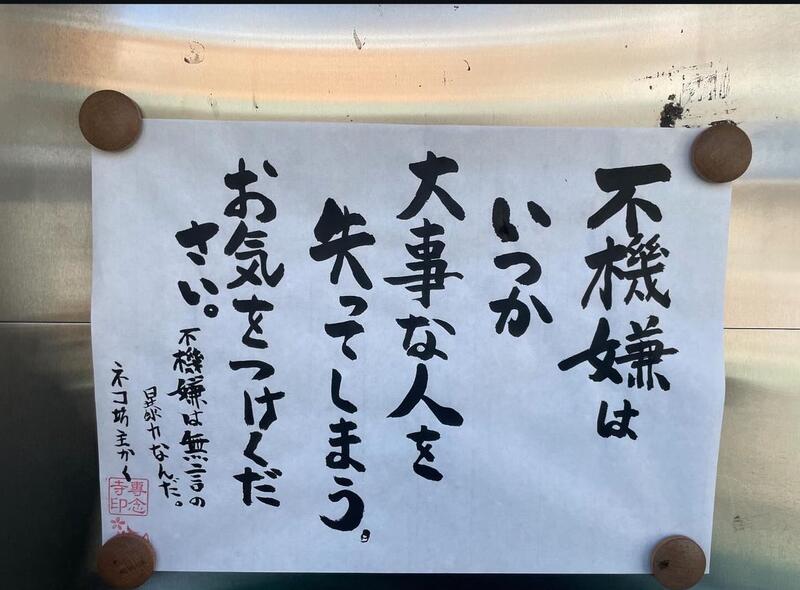 不機嫌は
いつか
大事な人を
失ってしまう。
お気をつけくだ
さい。
不機嫌は無言の
暴力なんだ。
ネコ坊主かく
専念
寺印